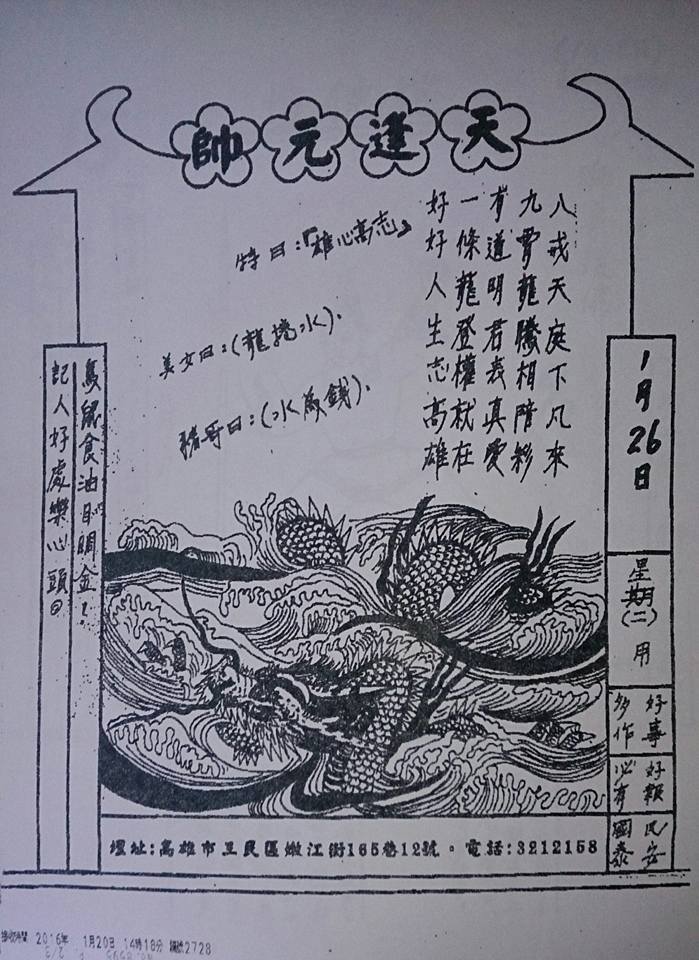 天蓬元帥
八戒天庭下凡來
九霄龍騰相陪彩
有道明君表真愛
一條龍登權就在
好好人生志高雄
特曰：『雄心高志』
美女曰：(龍擔水)．
豬哥曰：(水為錢)．
1月26日
星期(二)用
好事多作
好報必有
民安國泰
鳥鼠食油目睭金！
記人好處樂心頭。
壇址：高雄市三民區嫩江街165巷12號。電話：3212158
2016年 1月20日 14時18分
2728